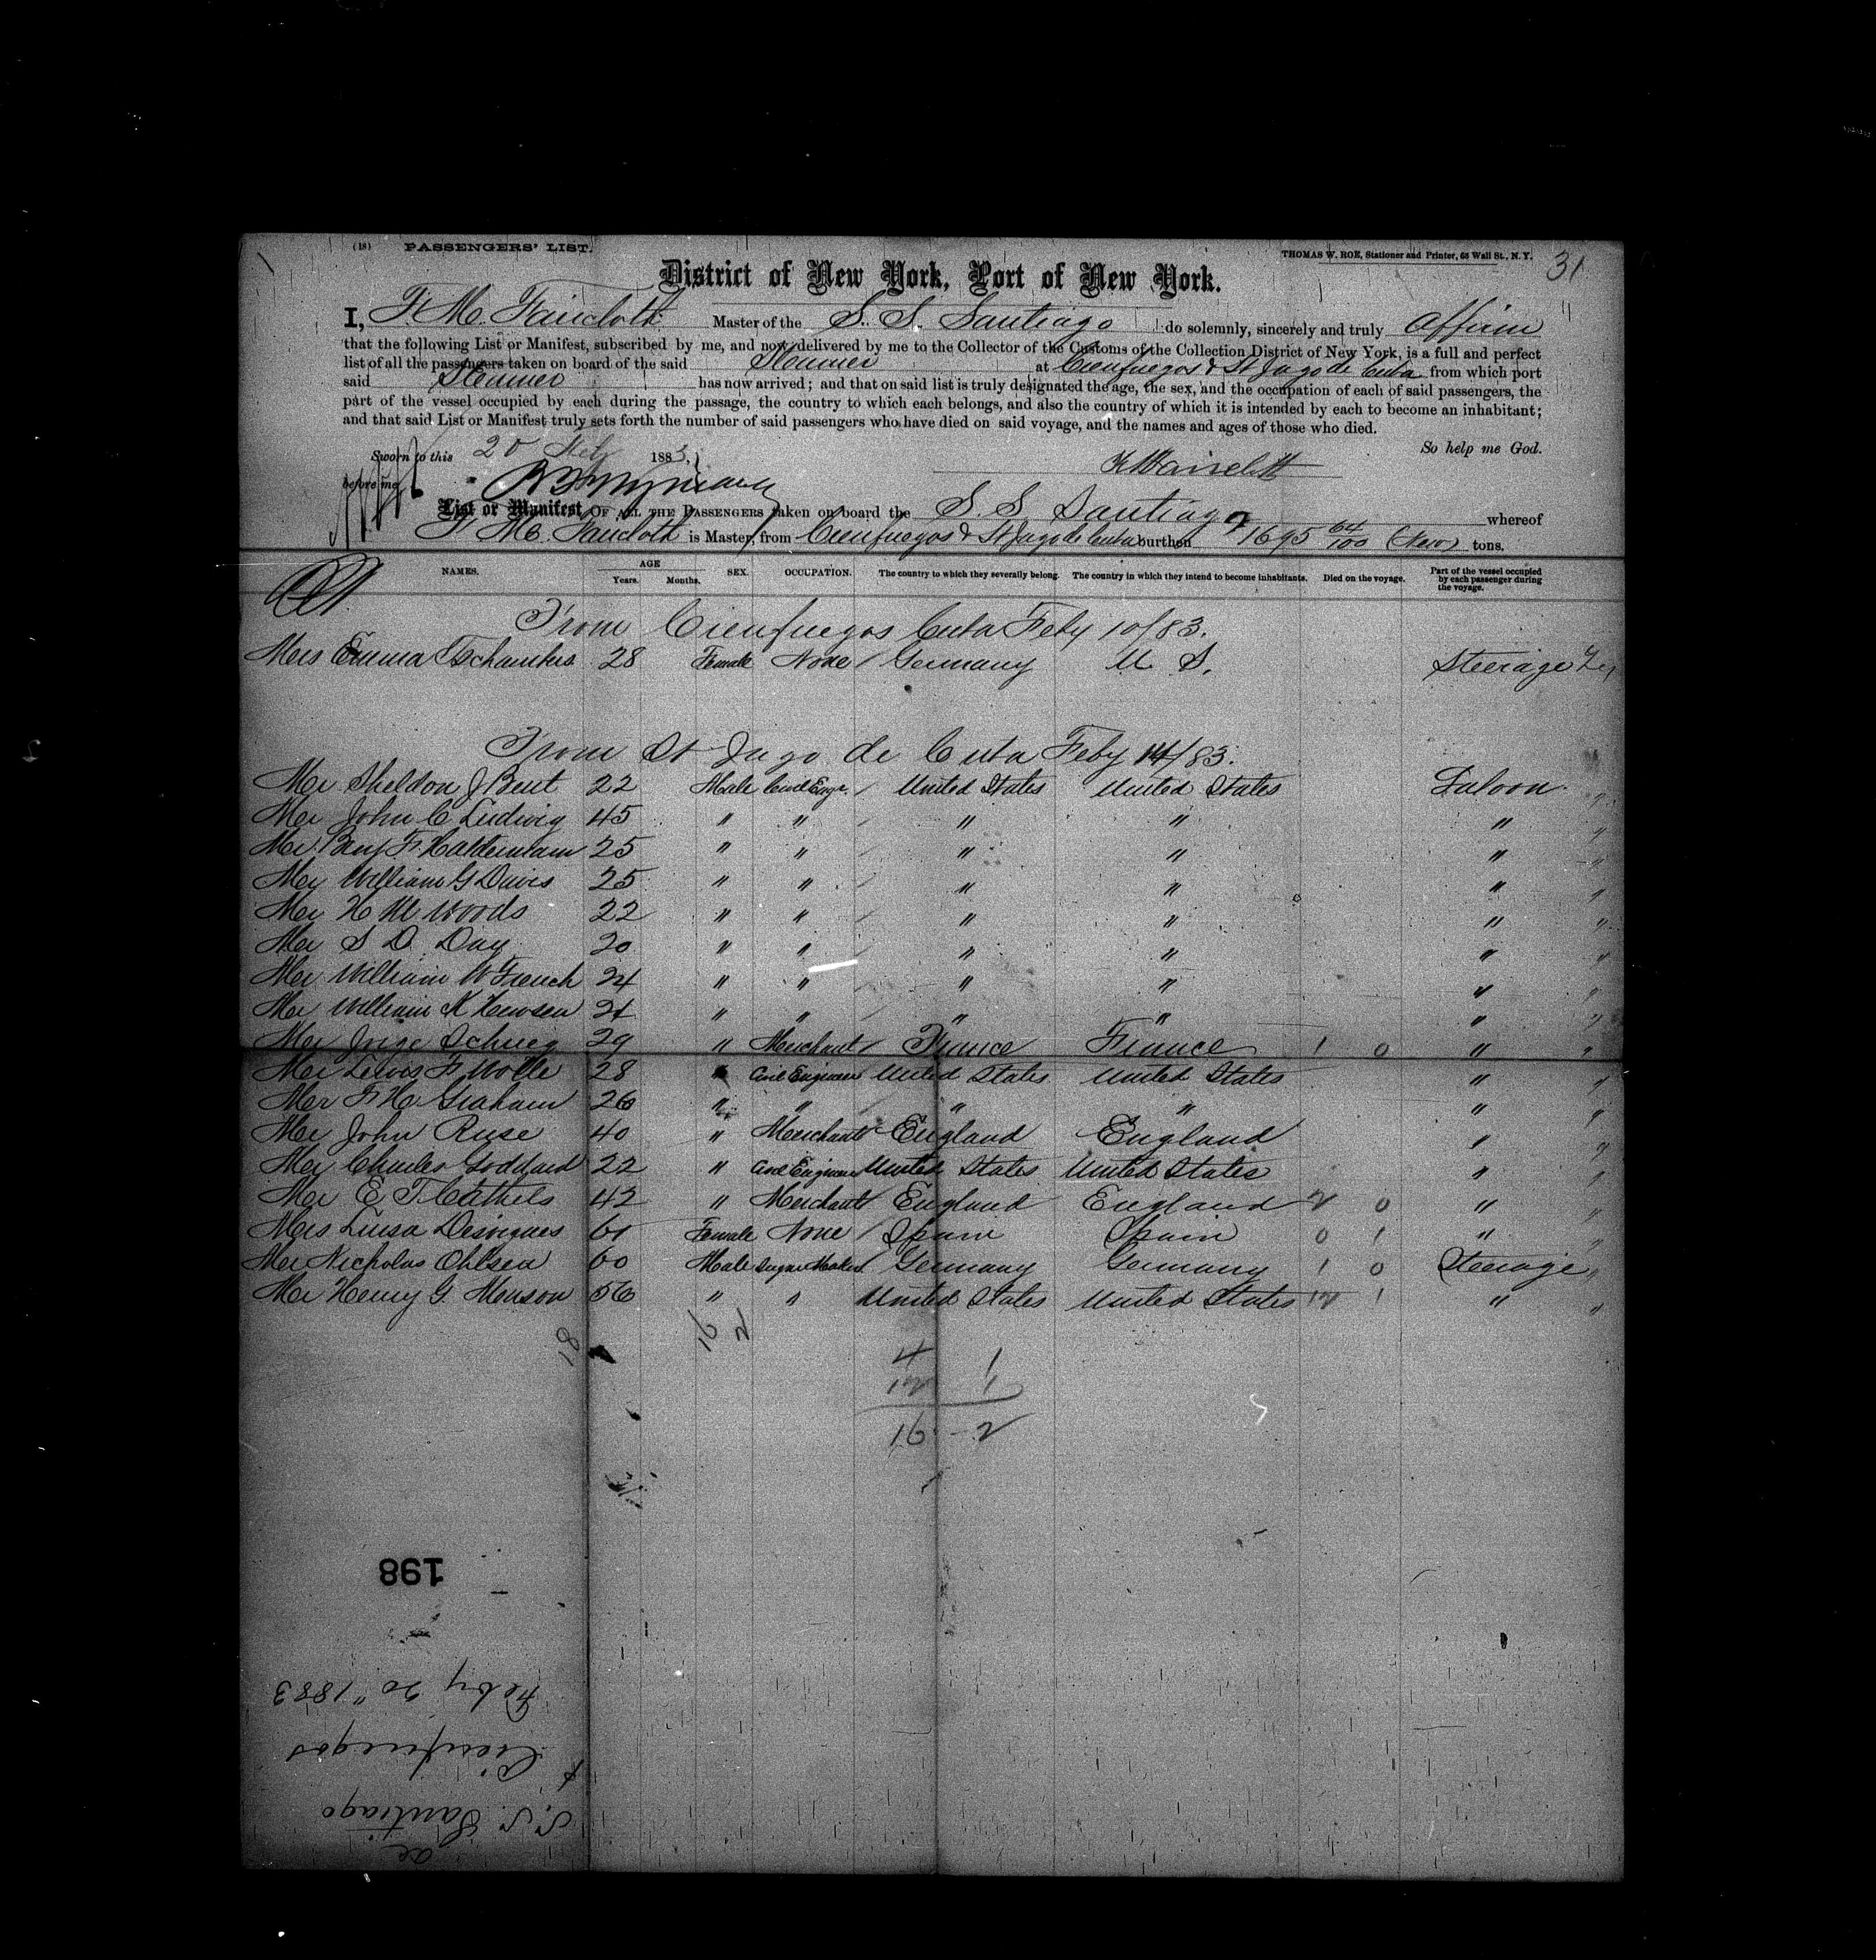 (18) PASSENGERS' LIST. THOMAS W. ROE, Stationer and Printer, 63 Wall St., N. Y. 31
District of New York, Port of New York.
I, F. M. Faircloth Master of the S. S. Santiago do solemnly, sincerely and truly Affirm
that the following List or Manifest, subscribed by me, and now delivered by me to the Collector of the Customs of the Collection District of New York, is a full and perfect
list of all the passengers taken on board of the said Steamer at Cienfuegos & St Jago de Cuba from which port
said Steamer has now arrived; and that on said list is truly designated the age, the sex, and the occupation of each of said passengers, the
part of the vessel occupied by each during the passage, the country to which each belongs, and also the country of which it is intended by each to become an inhabitant;
and that said List or Manifest truly sets forth the number of said passengers who have died on said voyage, and the names and ages of those who died.
So help me God.
Sworn to this 20 Feb 1883,
before me
List or Manifest OF ALL THE PASSENGERS taken on board the S. S. Santiago whereof
F. M. Faircloth is Master, from Cienfuegos & St Jago de Cuba burthen 1695 64/100 (New) tons.
NAMES. AGE Years. Months. SEX. OCCUPATION. The country to which they severally belong. The country in which they intend to become inhabitants. Died on the voyage. Part of the vessel occupied by each passenger during the voyage.
From Cienfuegos Cuba Feby 10/83.
Mrs Emma Tschambers 28 Female None Germany U S. Steerage
From St Jago de Cuba Feby 14/83.
Mr Sheldon J Bent 22 Male Civil Engr. United States United States Saloon
Mr John C Ludwig 45 " " " " "
Mr Benj F Haldemann 25 " " " " "
Mr William G Davis 25 " " " " "
Mr H M Woods 22 " " " " "
Mr S D Day 20 " " " " "
Mr William W French 24 " " " " "
Mr William K Hewsen 21 " " " " "
Mr Jorge Schueg 29 " Merchant France France 1 0 "
Mr Lewis F Wolle 28 " Civil Engineer United States United States "
Mr F H Graham 26 " " " " "
Mr John Ruse 40 " Merchant England England "
Mr Charles Goddard 22 " Civil Engineer United States United States "
Mr E T Cathels 42 " Merchant England England 2 0 "
Mrs Luisa Desvignes 61 Female None Spain Spain 0 1 "
Mr Nicholas Ohlsen 60 Male Sugar Maker Germany Germany 1 0 Steerage
Mr Henry G. Monson 56 " " United States United States 12 1 "
18 16 2
4 1
12 1
16 2
198
Feby 20" 1883
& Cienfuegos
S. S. Santiago